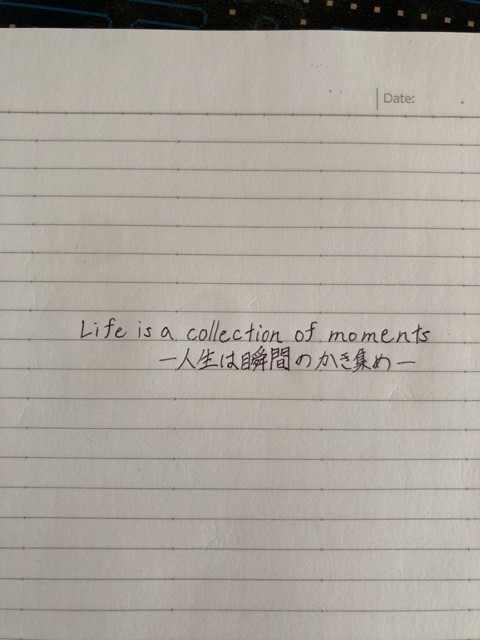 Date:
Life is a collection of moments
ー人生は瞬間のかき集めー